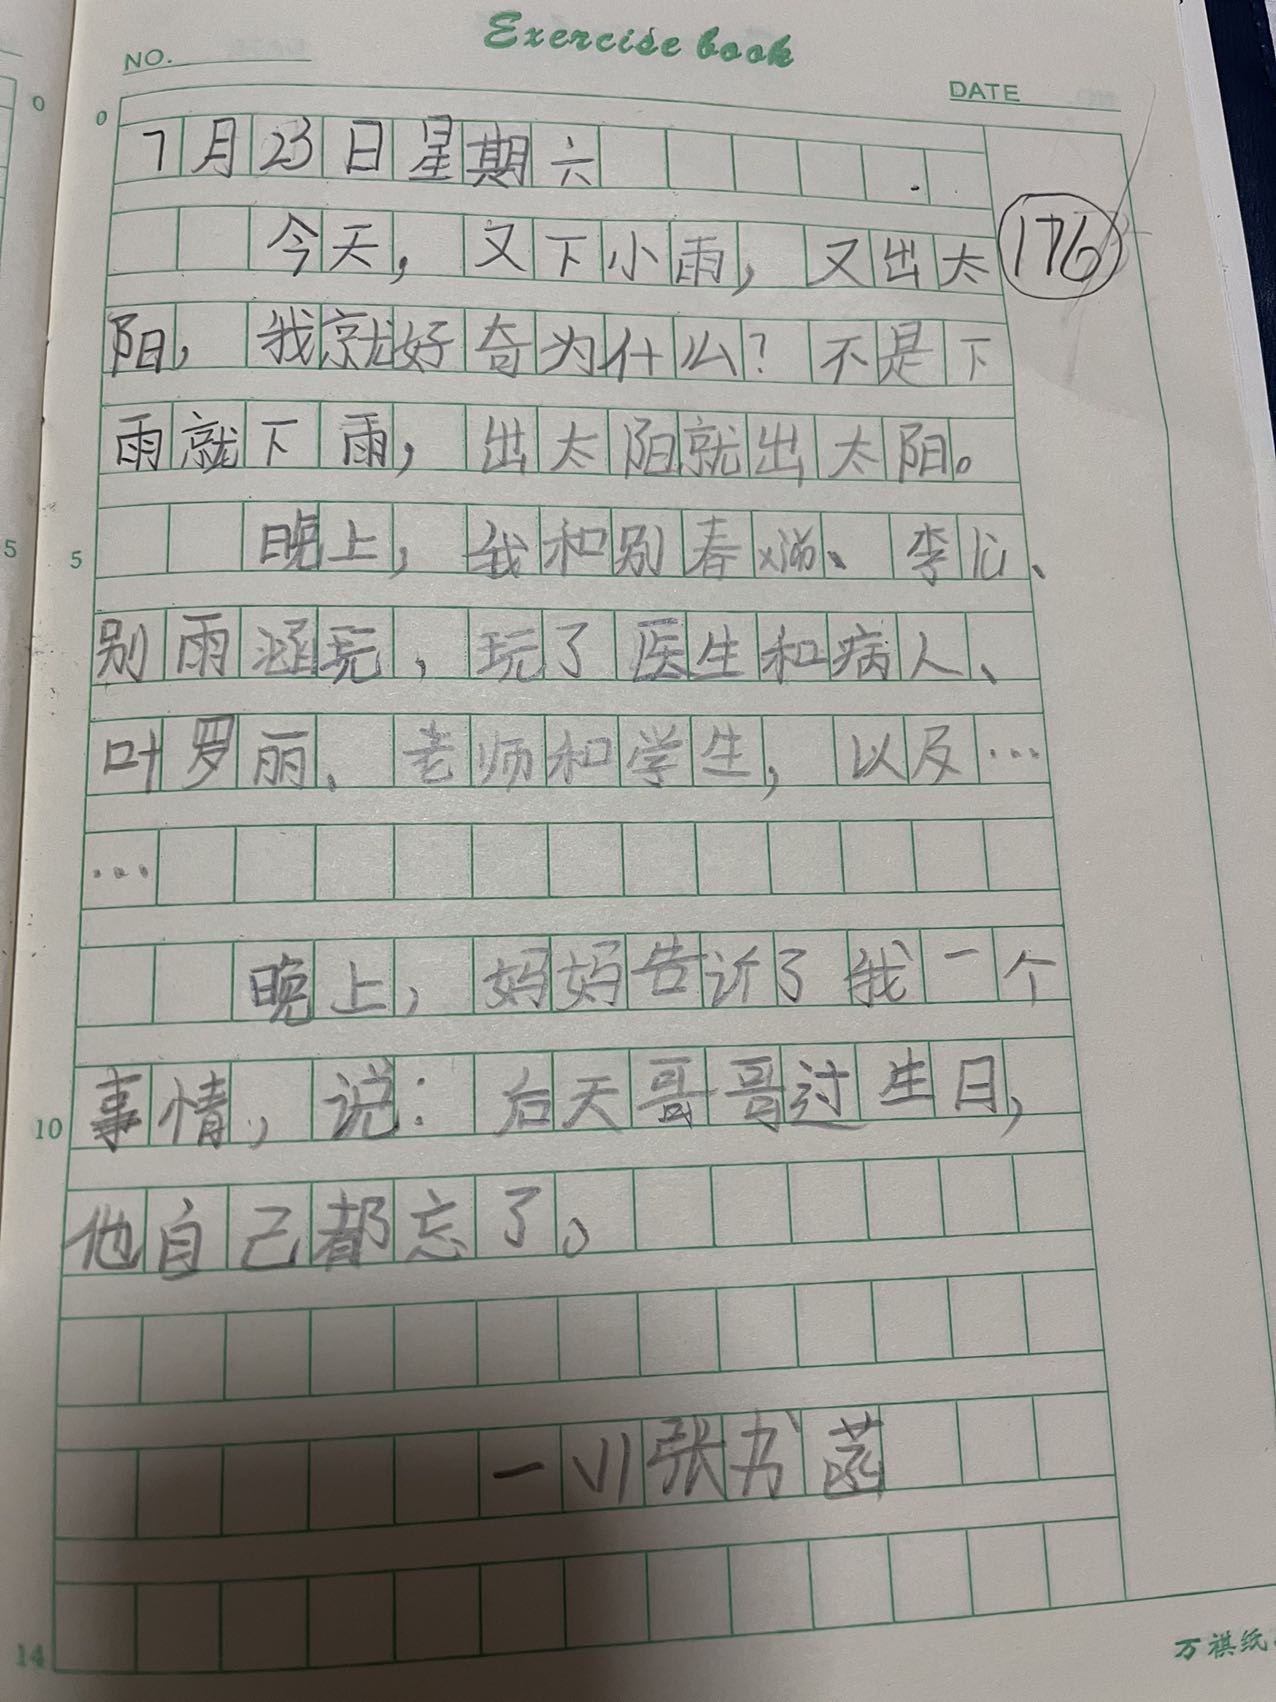 Exercise book
NO.
DATE
7月23日星期六
今天，又下小雨，又出太
176
阳，我就好奇为什么？不是下
雨就下雨，出太阳就出太阳。
晚上，我和别春、李、
别雨涵玩，玩了医生和病人、
叶罗丽、老师和学生，以及…
…
晚上，妈妈告诉了我一个
事情，说：后天哥哥过生日，
他自己都忘了。
一川张书菡
0
5
10
14
0
5
万祺纸